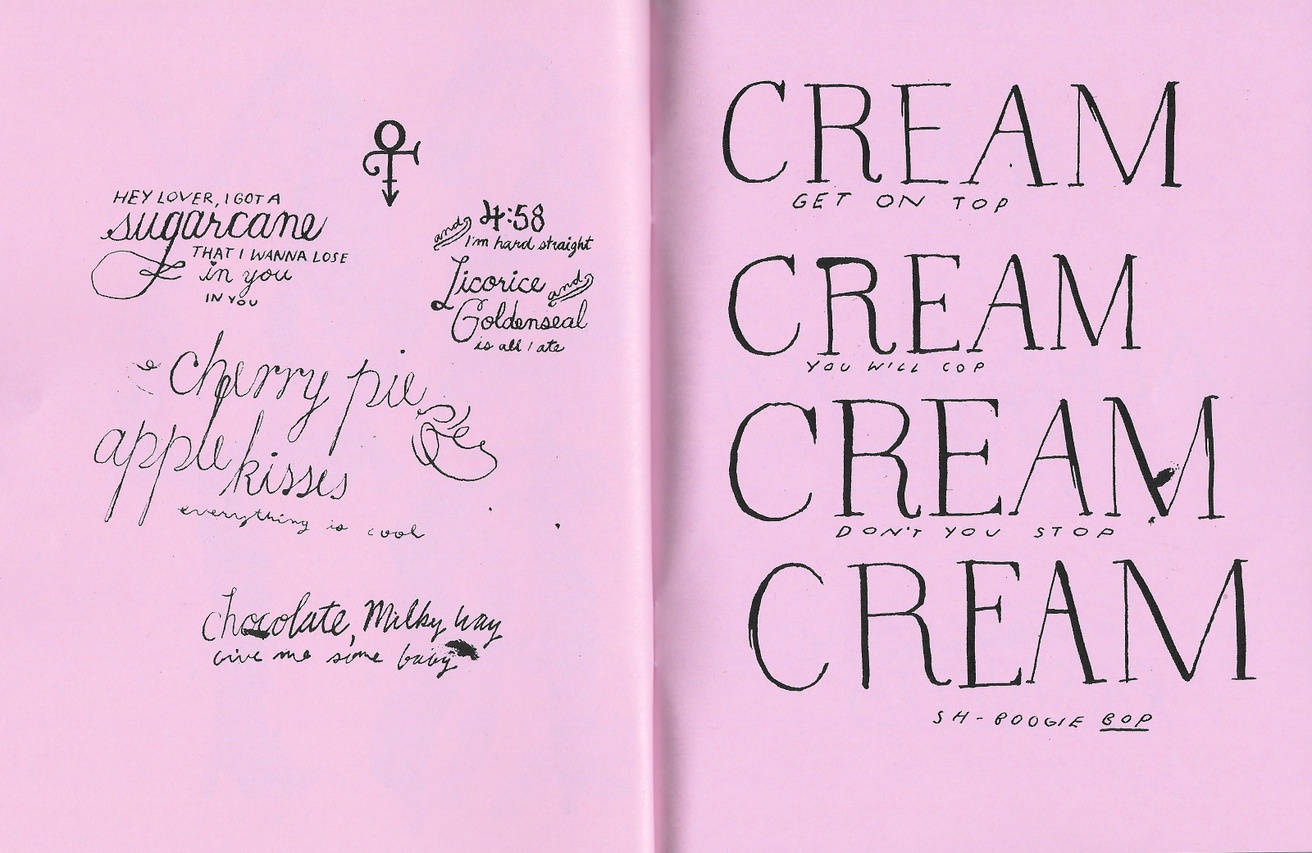 HEY LOVER, I GOT A
sugarcane
THAT I WANNA LOSE
in you
IN YOU
and 4:58
I'm hard straight
Licorice and
Goldenseal
is all I ate
cherry pie
apple kisses
everything is cool
chocolate, Milky Way
Give me some baby
CREAM
GET ON TOP
CREAM
YOU WILL COP
CREAM
DON'T YOU STOP
CREAM
SH-BOOGIE BOP